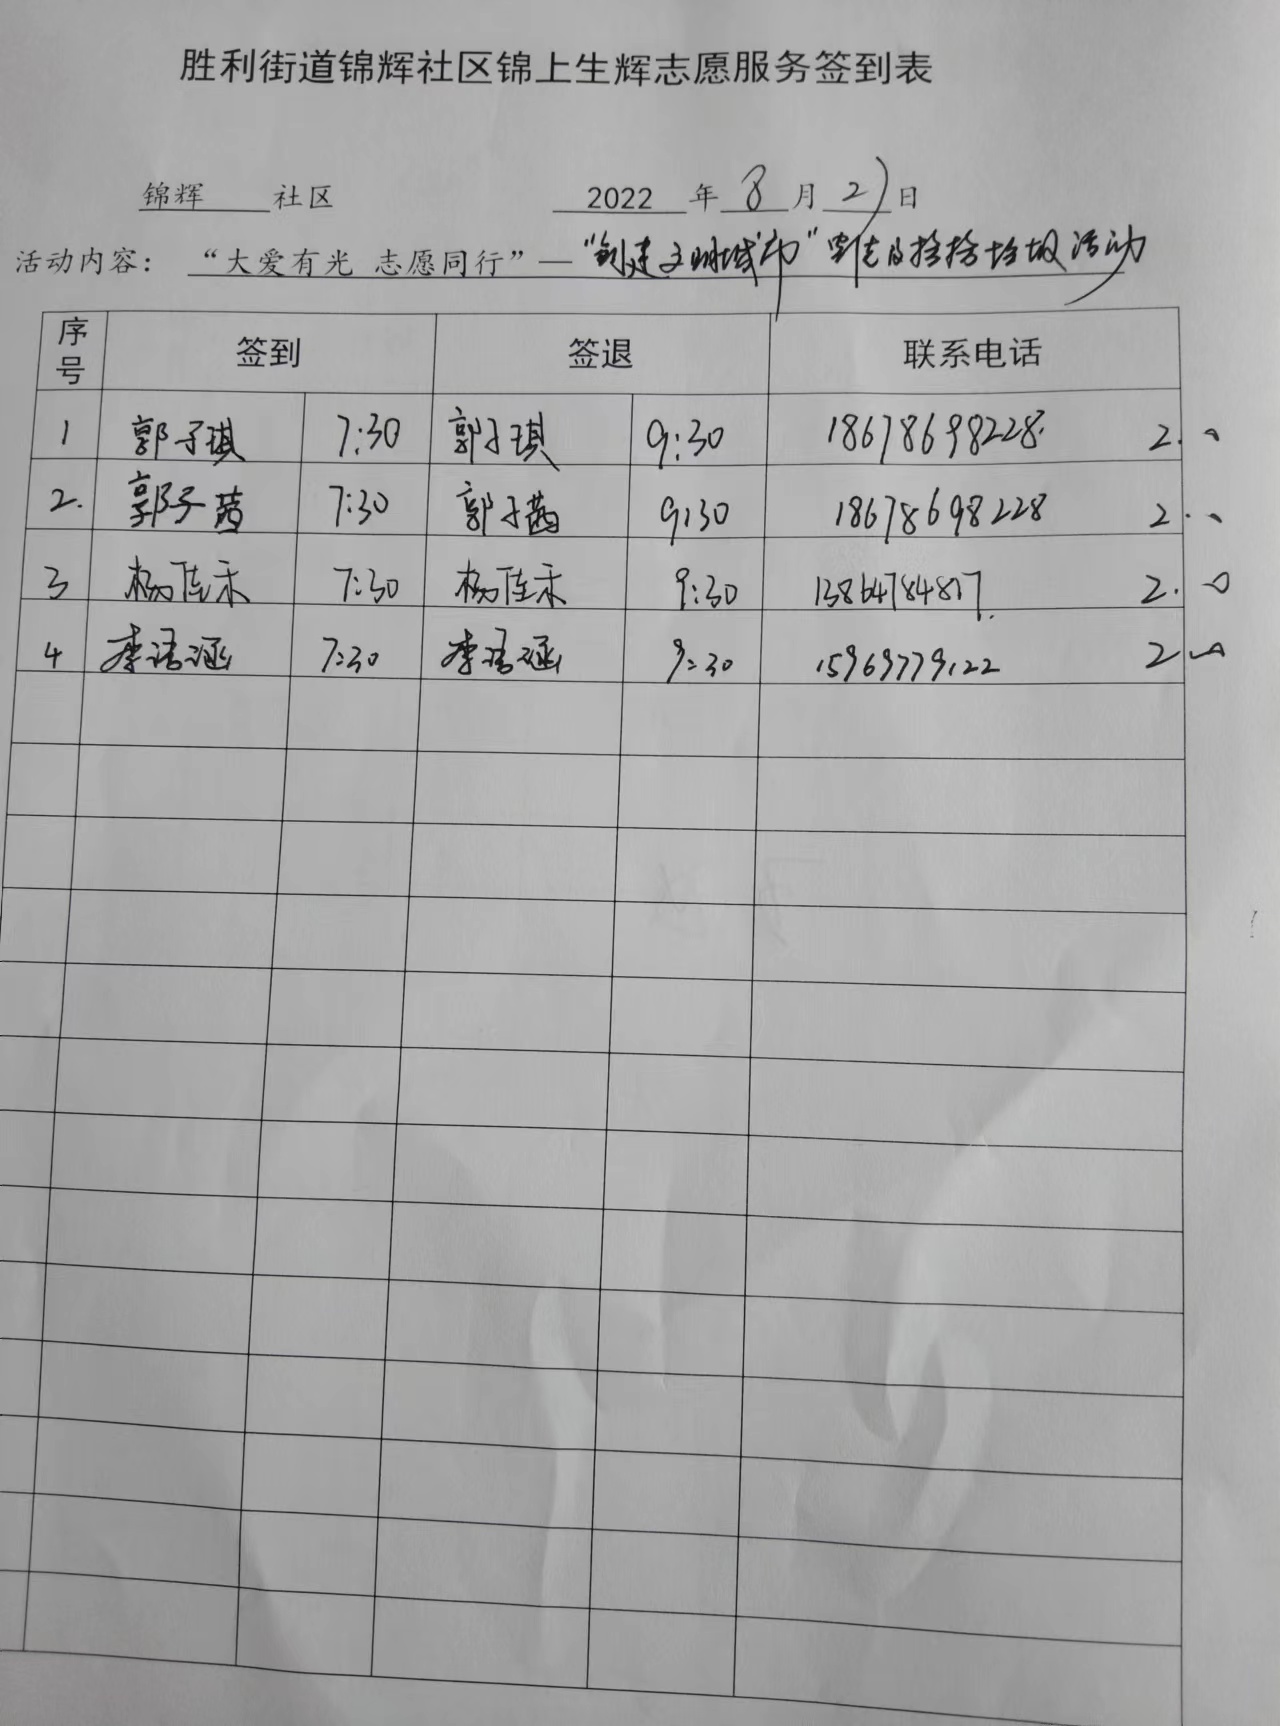 胜利街道锦辉社区锦上生辉志愿服务签到表
锦辉 社区 2022 年 8 月 21 日
活动内容： “大爱有光 志愿同行”—“创建文明城市”宣传及捡拾垃圾活动
序号 签到 签退 联系电话
1 郭子琪 7:30 郭子琪 9:30 18678698228 2.
2. 郭子茜 7:30 郭子茜 9:30 18678698228 2.
3 杨佳禾 7:30 杨佳禾 9:30 2.0
4 李语涵 7:30 李语涵 9:30 15969779122 2